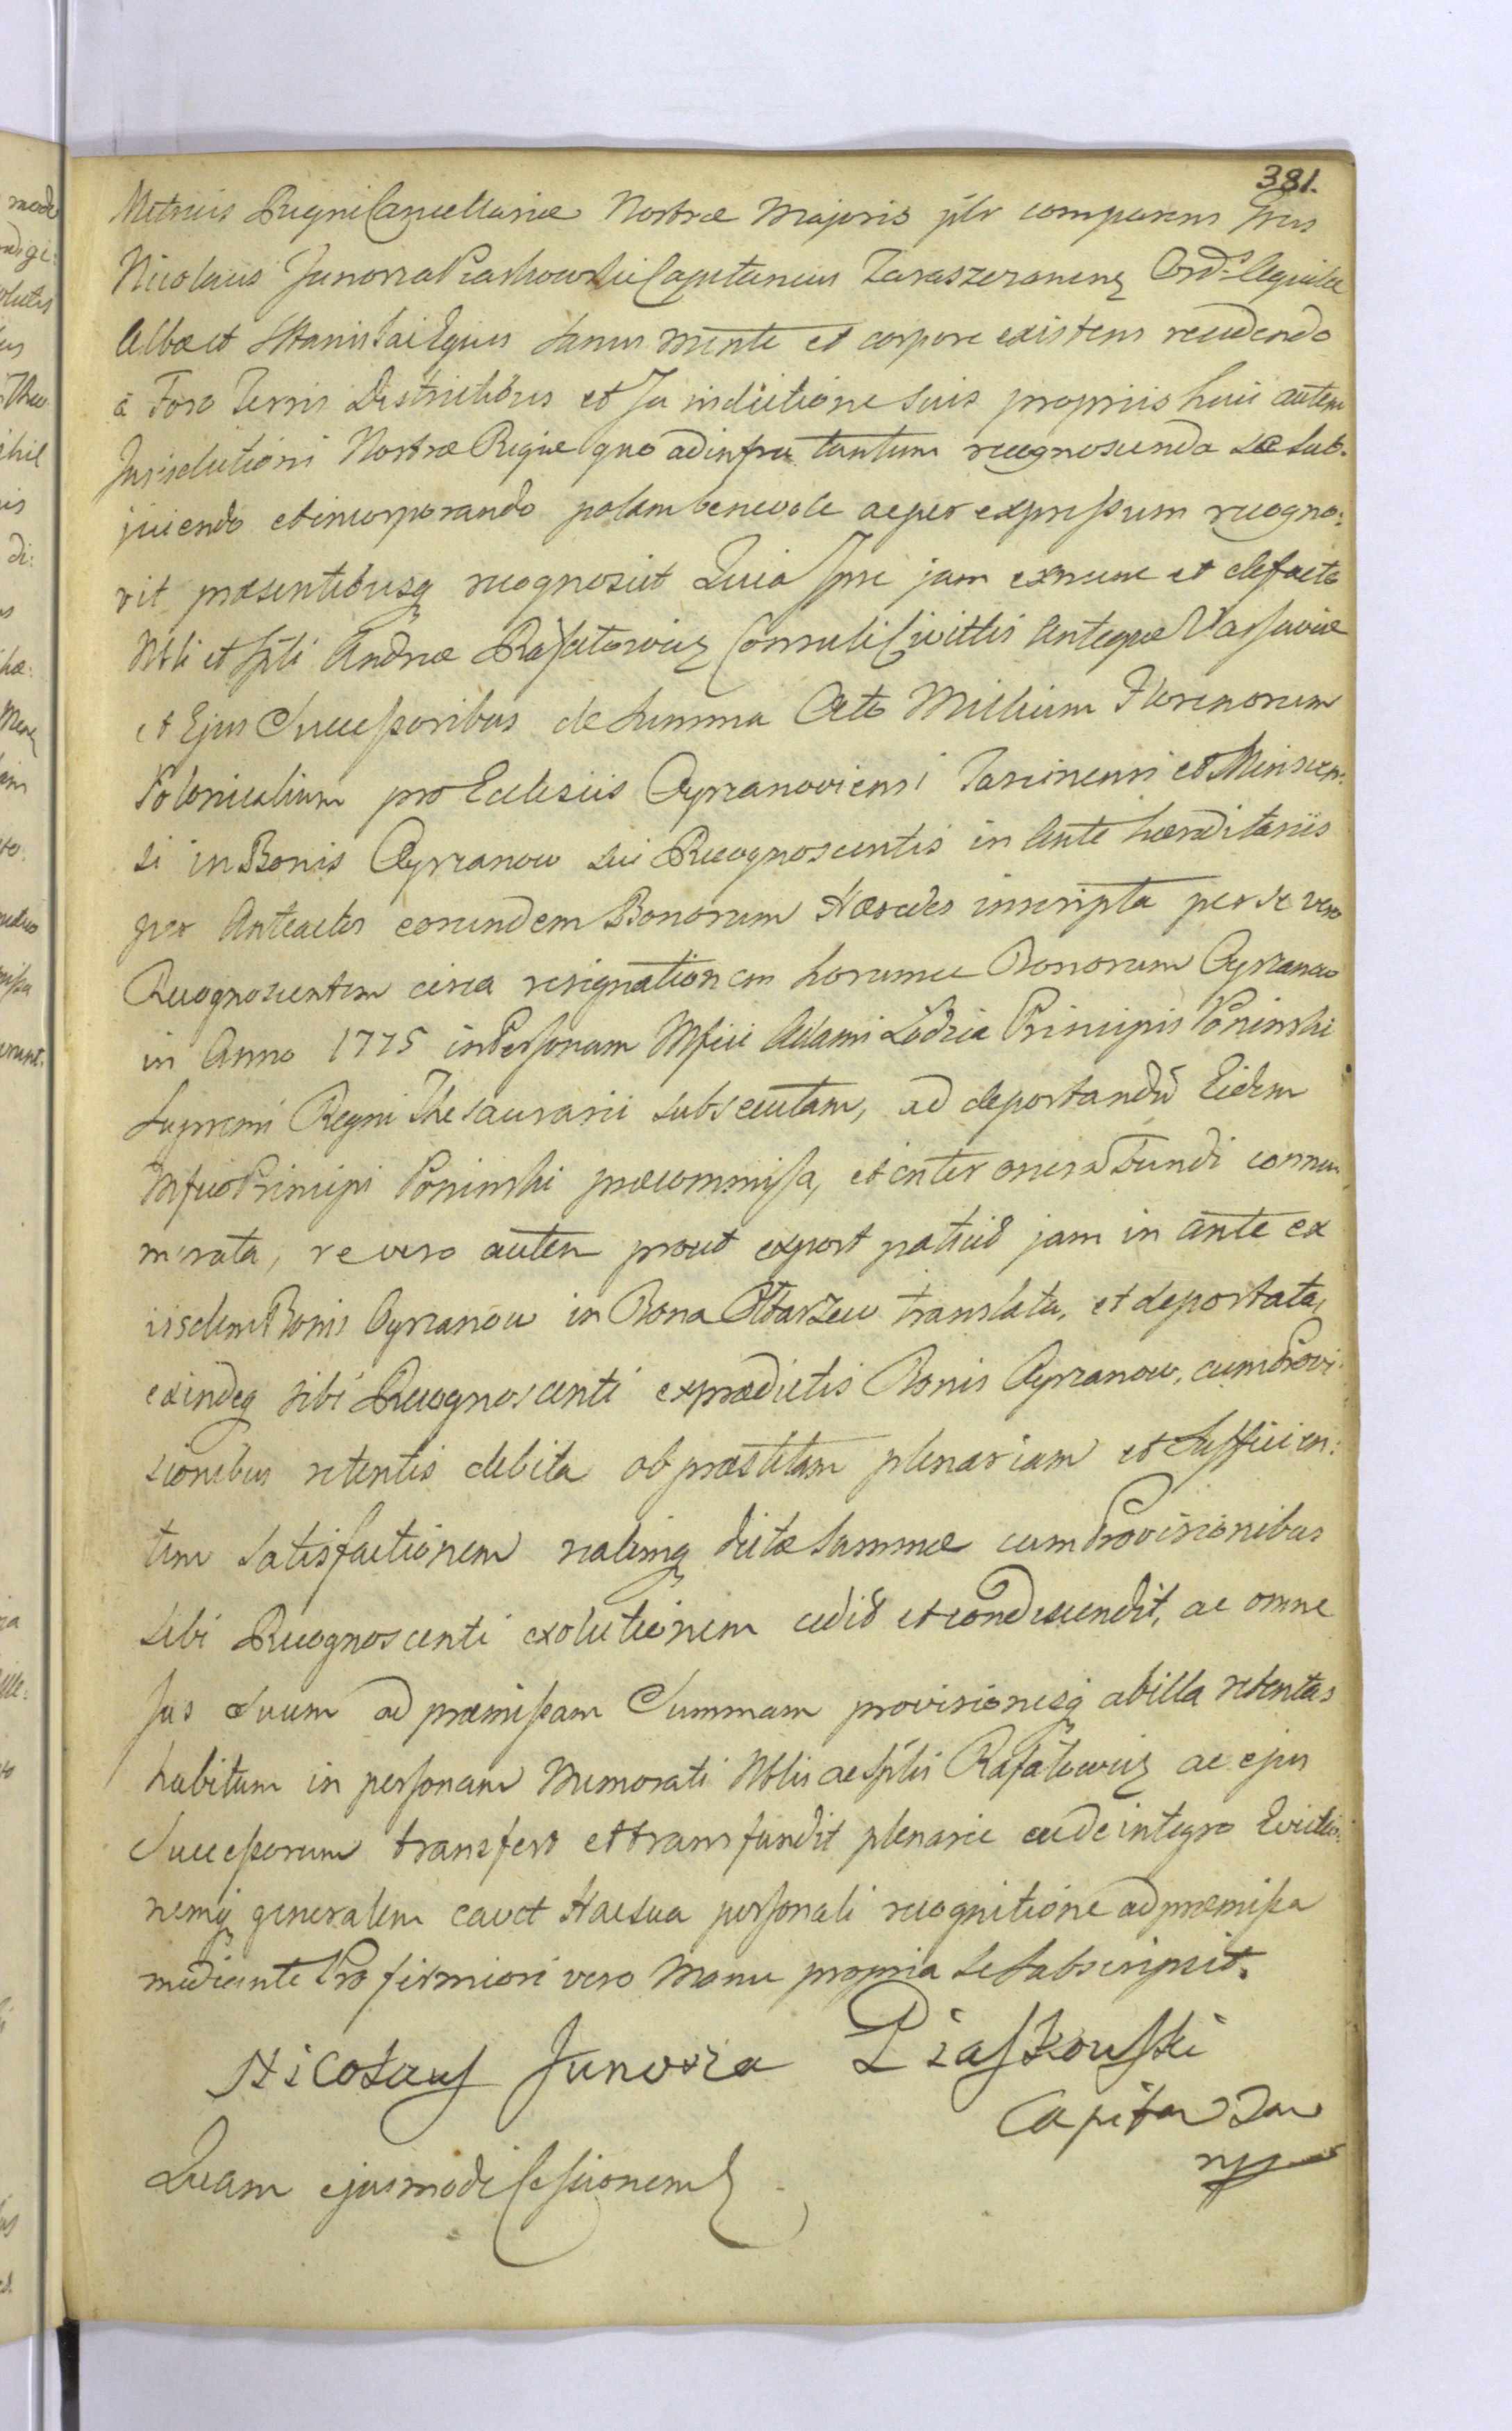 381.
Metricis Regni Cancellariae Nostrae Majoris pltr comparens Grsus
Nicolaus Junosza Piaskowski Capitaneus Taraszczanens Ord. Aquilae
Albae et S Stanislai Eques sanus mente et corpore existens recedendo
a Foro Terris Districtibus et Jurisdictione suis propriis huic autem
Jurisdictioni Nostrae Regiae quo ad infra tantum recognoscenda se sub-
jiciendo et incorporando palam benevole ac per expressum recogno:
vit praesentibusq recognoscit Quia Ipse jam exnunc et defacto
Nbli et Spli Andreae Rafałowicz Consuli Civittis Antiquae Varsaviae
et Ejus Successoribus de Summa Octo Millium Florenorum
Polonicalium pro Ecclesiis Cyrzanoviensi Jasinensi et Minscen:
si in Bonis Cyrzanow sui Recognoscentis in ante haereditariis
per Anteactos eorundem Bonorum Haeredes inscripta per se vero
Recognoscentem circa resignationem horumce Bonorum Cyrzanow
in Anno 1775 in Personam Mfici Adami Łodzia Principis Poninski
Supremi Regni Thesaurarii subsecutam, ad deportandũ Eidem
Mfico Principi Poninski praecommissa, et inter onera Fundi connu
merata, revera autem prout expost patuit jam in ante ex
iisdem Bonis Cyrzanow in Bona Ołtarzew translata, et deportata,
exindeq sibi Recognoscenti expraedictis Bonis Cyrzanow, cum Provi:
sionibus retentis debita ob praestitam plenariam et Sufficien:
tem Satisfactionem realemq dictae Summae cum Provisionibus
sibi Recognoscenti exolutionem cedit et condescendit, ac omne
Jus Suum ad praemissam Summam provisionesq ab illa retentas
habitum in personam Memorati Nblis ac Splis Rafałowicz ac ejus
Successorum transfert et transfundit plenarie ac de integro Evictio:
nemq generalem cavet Hac sua personali recognitione ad praemissa
mediante Pro firmiori vero Manu propria se Subscripsit.
Nicolaus Junosza Piaskowski
Capitan Tar
mpp
Quam ejusmodi Cessionem